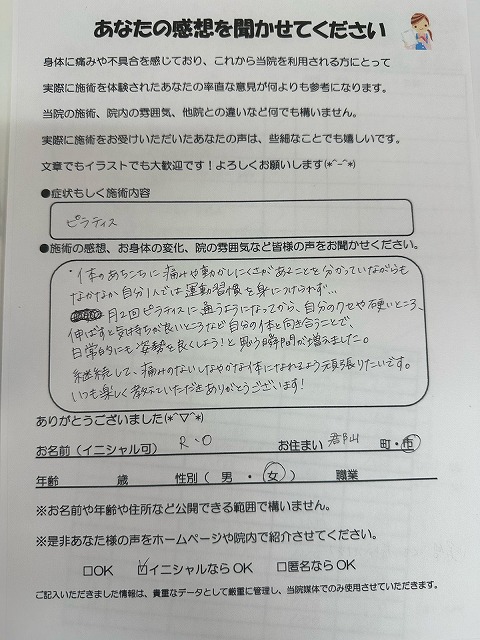 あなたの感想を聞かせてください
身体に痛みや不具合を感じており、これから当院を利用される方にとって
実際に施術を体験されたあなたの率直な意見が何よりも参考になります。
当院の施術、院内の雰囲気、他院との違いなど何でも構いません。
実際に施術をお受けいただいたあなたの声は、些細なことでも嬉しいです。
文章でもイラストでも大歓迎です！よろしくお願いします(*^-^*)
●症状もしく施術内容
ピラティス
●施術の感想、お身体の変化、院の雰囲気など皆様の声をお聞かせください。
・体のあちこちに痛みや動かしにくさがあることを分かっていながらも
なかなか自分1人では運動習慣を身につけられず…
月2回ピラティスに通うようになってから、自分のクセや硬いところ、
伸ばすと気持ちが良いところなど自分の体と向き合うことで、
日常的にも姿勢を良くしよう！と思う瞬間が増えました。
継続して、痛みのないしなやかな体になれるよう頑張りたいです。
いつも楽しく教えていただきありがとうございます！
ありがとうございました(*^▽^*)
お名前（イニシャル可） R・O お住まい 郡山 町・市
年齢 歳 性別（ 男 ・ 女 ） 職業
※お名前や年齢や住所など公開できる範囲で構いません。
※是非あなた様の声をホームページや院内で紹介させてください。
□OK ☑イニシャルなら OK □匿名なら OK
ご記入いただきました情報は、貴重なデータとして厳重に管理し、当院媒体でのみ使用させていただきます。